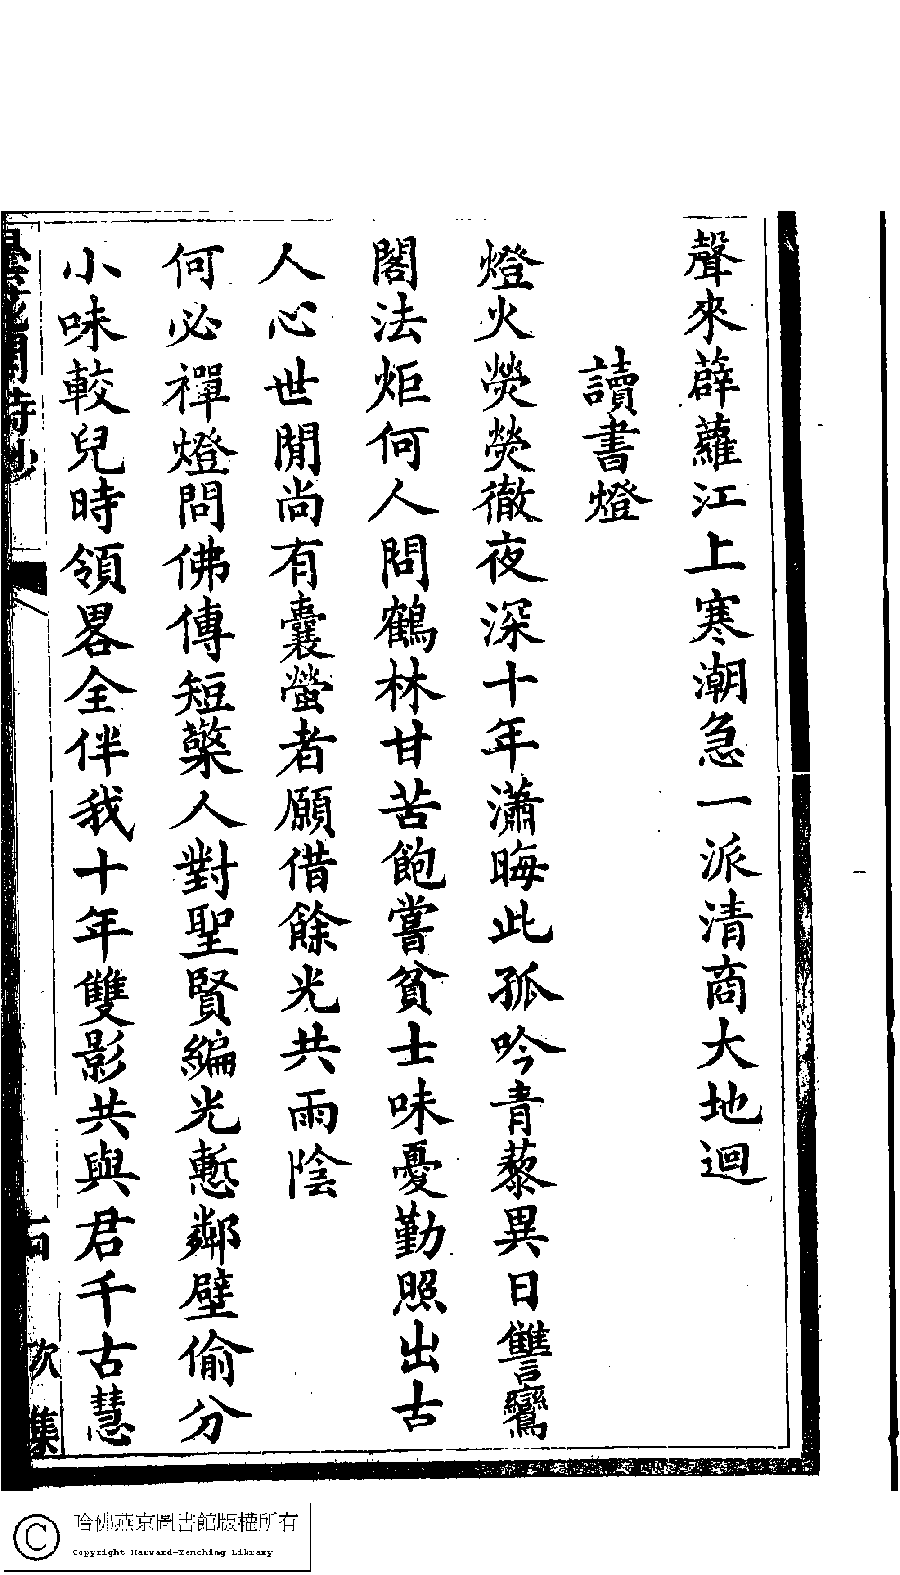 聲來薜蘿江上寒潮急一派清商大地迴
讀書燈
燈火熒熒徹夜深十年瀟晦此孤吟青藜異日讐鸞
閣法炬何人問鶴林甘苦飽嘗貧士味憂勤照出古
人心世閒尚有囊螢者願借餘光共雨陰
何必禪燈問佛傳短檠人對聖賢編光慙鄰壁偷分
小味較兒時領畧全伴我十年雙影共與君千古慧
曇花閣詩鈔
次集
哈佛燕京圖書館版權所有
Copyright Harvard-Yenching Library